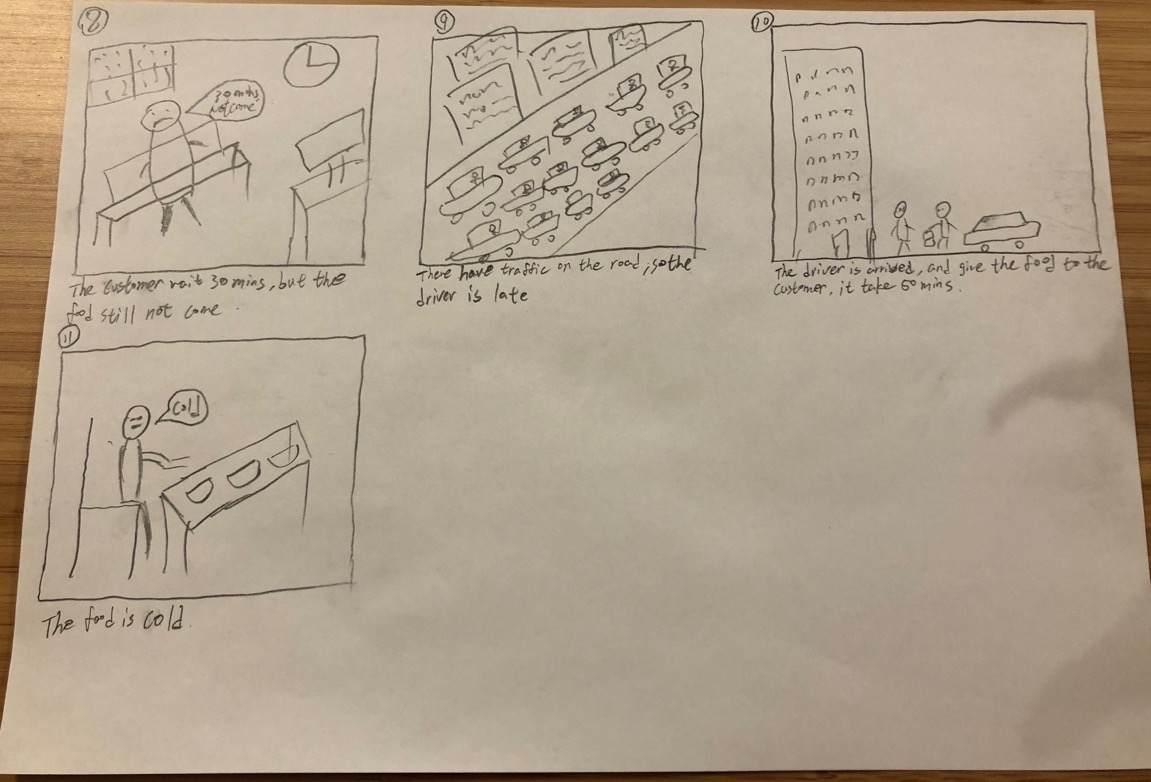 8
30 mins
Not come
The customer wait 30 mins, but the
food still not come.
9
There have traffic on the road, so the
driver is late
10
The driver is arrived, and give the food to the
customer, it take 60 mins.
11
cold
The food is cold.